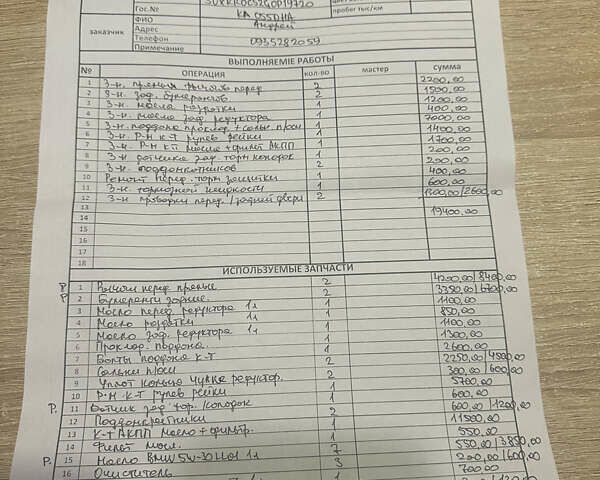 Гос.№
КА 0550НА
пробег тыс/км
заказчик
ФИО
Андрей
Адрес
Телефон
0935282059
Примечание
ВЫПОЛНЯЕМЫЕ РАБОТЫ
№ ОПЕРАЦИЯ кол-во мастер сумма
1 З-н. прямых рычагов перед 2 2200,00
2 З-н. зад. бумерангов 2 1500,00
3 З-н. масла раздатки 1 1200,00
4 З-н. масла зад. редуктора 1 400,00
5 З-н. поддона проклад. + сальн. п/оси 1 7000,00
6 З-н. Р-Н К-Т рулев рейки 1 1400,00
7 З-н. Р-Н К-Т масла + фильт АКПП 1 1700,00
8 З-н датчика зад. торм колодок 1 200,00
9 З-н. поддомкратников 2 200,00
10 Ремонт перед. торм защитки 1 400,00
11 З-н. тормозной жидкости 1 600,00
12 З-н проводки перед/задней двери 2 1300,00/2600,00
13
14 19400,00
15
16
17
18
ИСПОЛЬЗУЕМЫЕ ЗАПЧАСТИ
Р 1 Рычаги перед прямые 2 4200,00/8400,00
Р 2 Бумеранги задние. 2 3350,00/6700,00
3 Масло перед редуктора 1л 1 1100,00
4 Масло раздатки 1л 1 850,00
5 Масло зад. редуктора 1л 1 1100,00
6 Проклад. поддона. 1 1300,00
7 Болты поддона К-Т 1 2600,00
8 Сальн п/оси 2 2250,00/4500,00
9 Уплот кольцо чулка редуктор. 2 300,00/600,00
10 Р-Н К-Т рулев рейки 1 5700,00
Р. 11 Датчик зад тор./колодок 1 600,00
12 Поддомкратники 2 600,00/1200,00
13 К-Т АКПП масло + фильтр. 1 11500,00
14 Фильт масл. 1 550,00
Р. 15 Масло BMW 5W-30 LL01 1л 7 550,00/3850,00
16 Очиститель 3 200,00/600,00
700,00